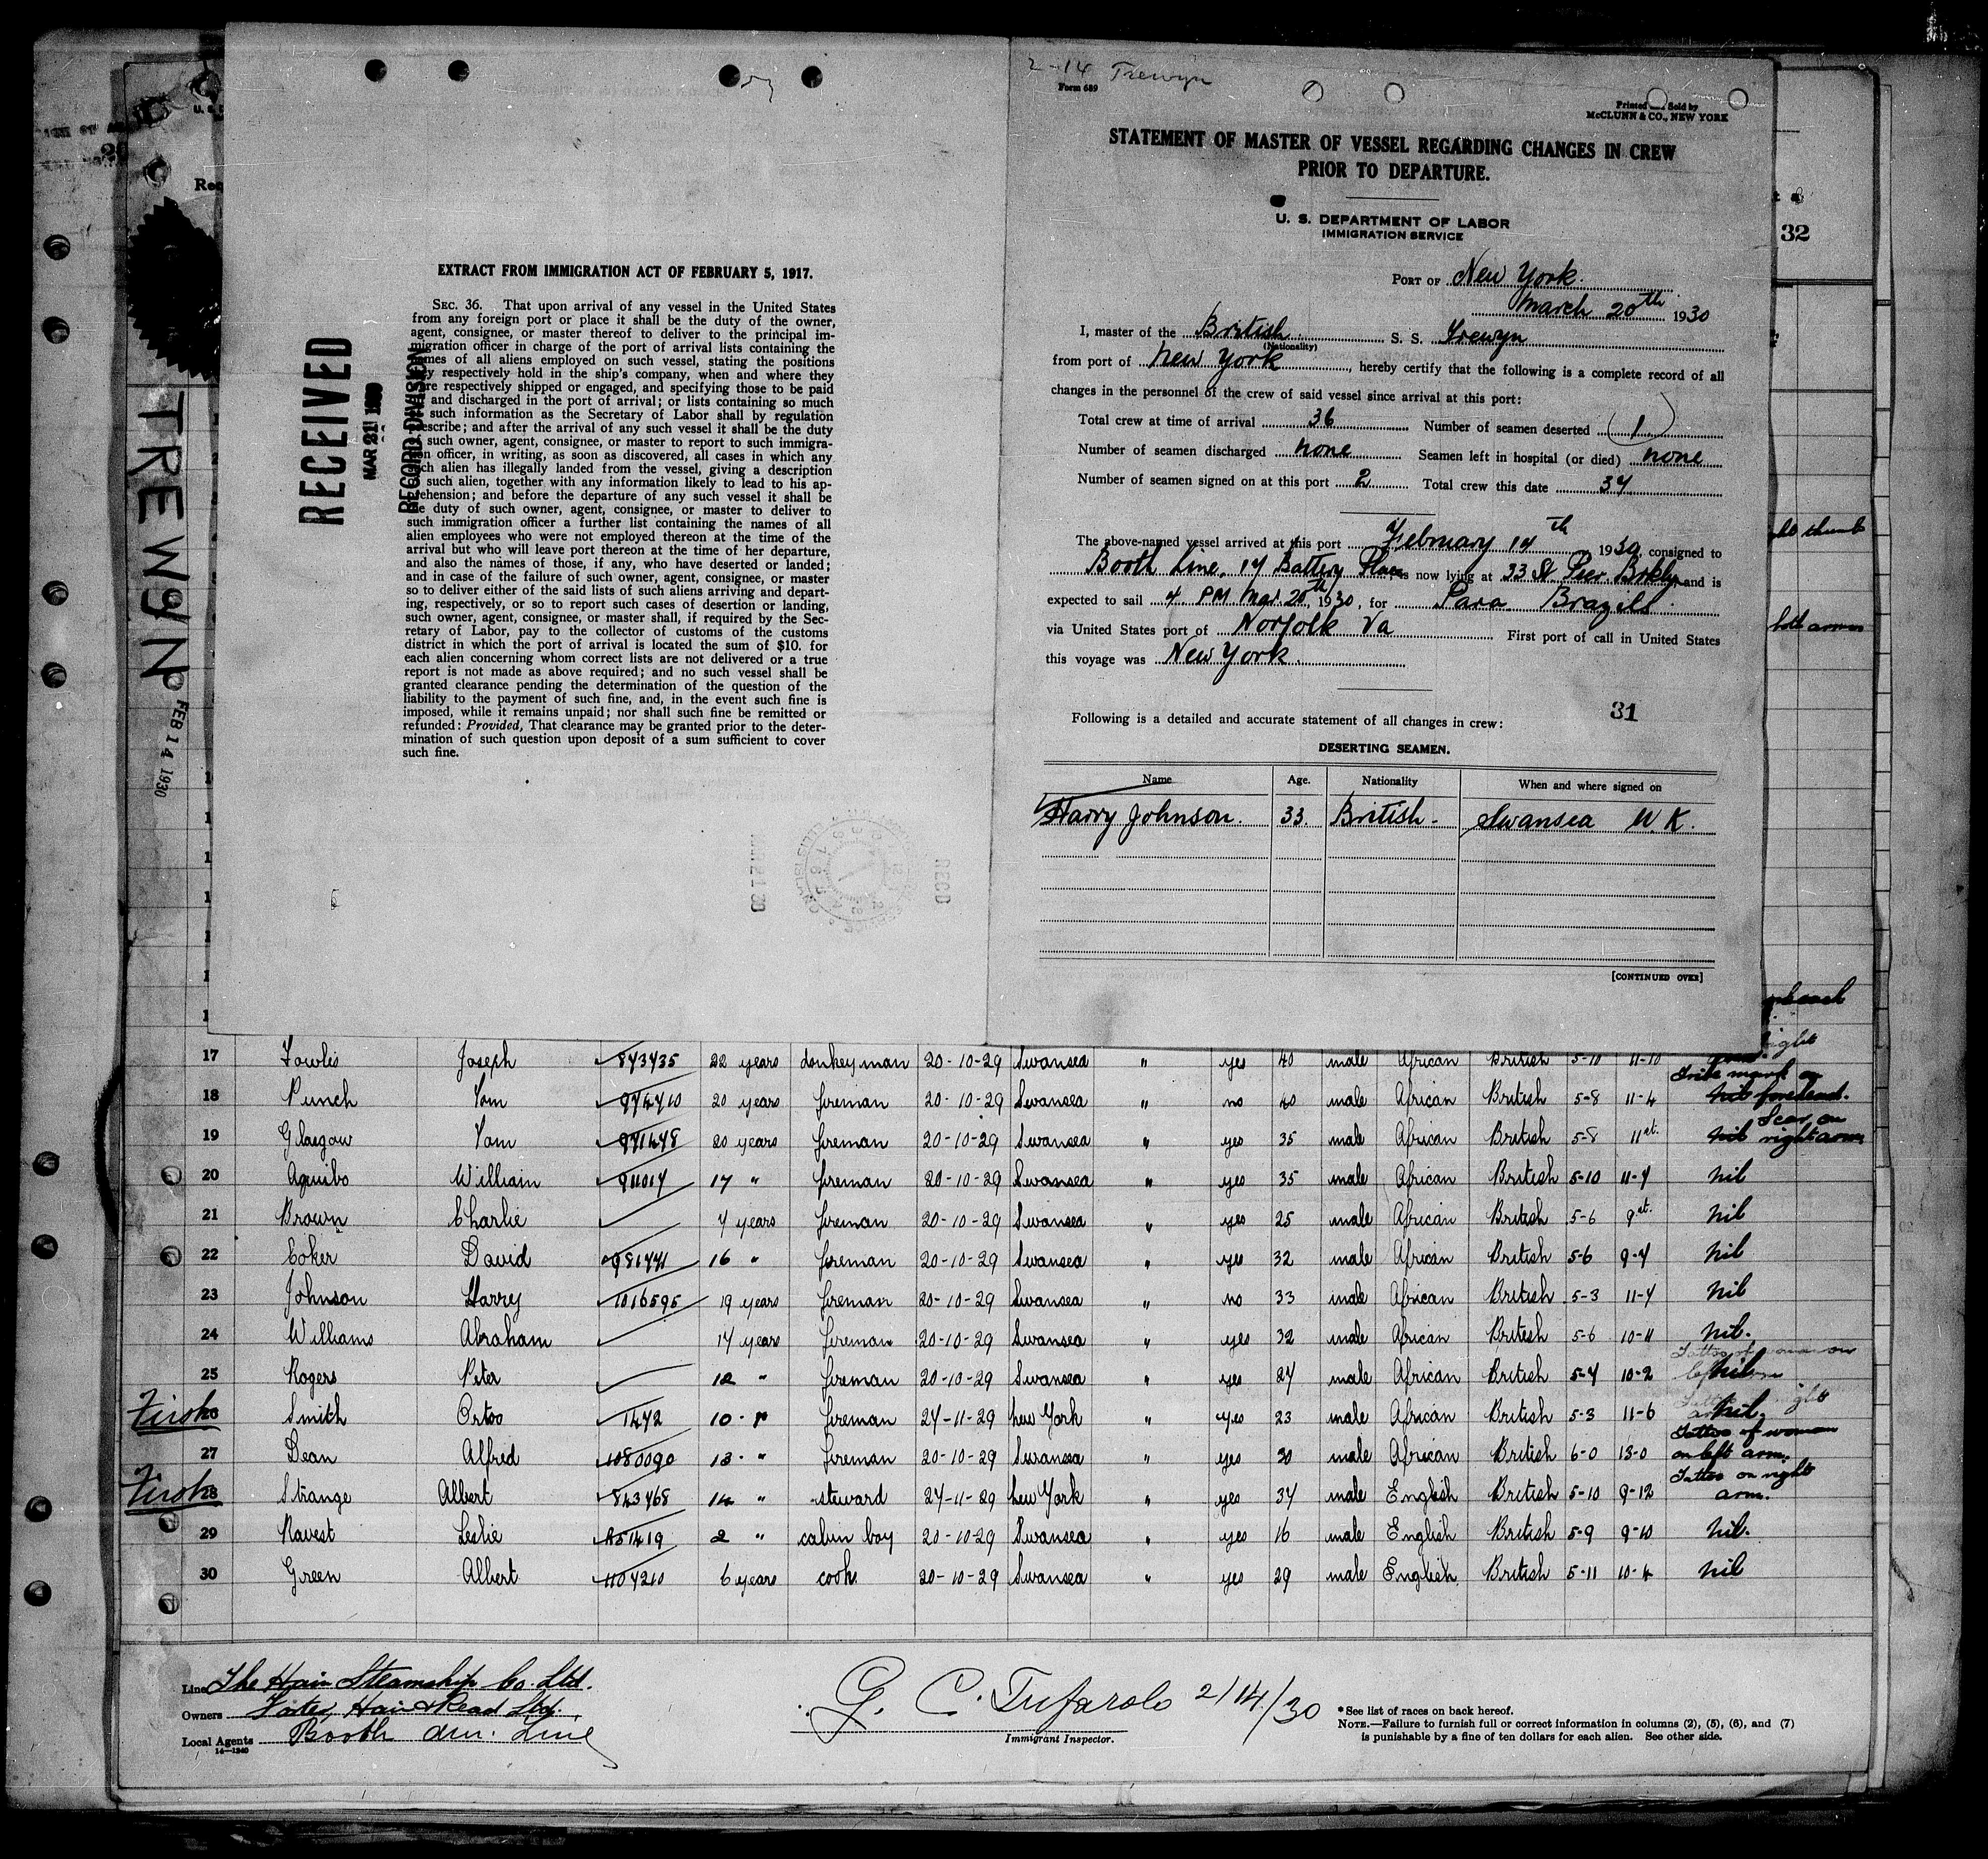 2-14 Trewyn
Form 689
Printed and Sold by
McCLUNN & CO., NEW YORK
STATEMENT OF MASTER OF VESSEL REGARDING CHANGES IN CREW
PRIOR TO DEPARTURE.
U. S. DEPARTMENT OF LABOR
IMMIGRATION SERVICE
PORT OF New York.
March 20th 1930
I, master of the British S. S. Trewyn
(Nationality)
from port of New York, hereby certify that the following is a complete record of all
changes in the personnel of the crew of said vessel since arrival at this port:
Total crew at time of arrival 36 Number of seamen deserted 1
Number of seamen discharged none Seamen left in hospital (or died) none
Number of seamen signed on at this port 2 Total crew this date 37
The above-named vessel arrived at this port February 14th 1930, consigned to
Booth Line, 17 Battery Place is now lying at 33 St Pier. Bkly, and is
expected to sail 4 PM Mar 20th, 1930, for Para Brazils.
via United States port of Norfolk Va First port of call in United States
this voyage was New York.
31
Following is a detailed and accurate statement of all changes in crew:
DESERTING SEAMEN.
Name Age. Nationality When and where signed on
Harry Johnson. 33. British - Swansea U.K.
[CONTINUED OVER]
EXTRACT FROM IMMIGRATION ACT OF FEBRUARY 5, 1917.
SEC. 36. That upon arrival of any vessel in the United States
from any foreign port or place it shall be the duty of the owner,
agent, consignee, or master thereof to deliver to the principal im-
migration officer in charge of the port of arrival lists containing the
names of all aliens employed on such vessel, stating the positions
they respectively hold in the ship's company, when and where they
were respectively shipped or engaged, and specifying those to be paid
and discharged in the port of arrival; or lists containing so much
such information as the Secretary of Labor shall by regulation
prescribe; and after the arrival of any such vessel it shall be the duty
such owner, agent, consignee, or master to report to such immigra-
tion officer, in writing, as soon as discovered, all cases in which any
such alien has illegally landed from the vessel, giving a description
such alien, together with any information likely to lead to his ap-
prehension; and before the departure of any such vessel it shall be
the duty of such owner, agent, consignee, or master to deliver to
such immigration officer a further list containing the names of all
alien employees who were not employed thereon at the time of the
arrival but who will leave port thereon at the time of her departure,
and also the names of those, if any, who have deserted or landed;
and in case of the failure of such owner, agent, consignee, or master
so to deliver either of the said lists of such aliens arriving and depart-
ing, respectively, or so to report such cases of desertion or landing,
such owner, agent, consignee, or master shall, if required by the Sec-
retary of Labor, pay to the collector of customs of the customs
district in which the port of arrival is located the sum of $10. for
each alien concerning whom correct lists are not delivered or a true
report is not made as above required; and no such vessel shall be
granted clearance pending the determination of the question of the
liability to the payment of such fine, and, in the event such fine is
imposed, while it remains unpaid; nor shall such fine be remitted or
refunded: Provided, That clearance may be granted prior to the deter-
mination of such question upon deposit of a sum sufficient to cover
such fine.
RECEIVED
MAR 21 1930
RECORD DIVISION
TREWYN
FEB 14 1930
32
17 Fowlis Joseph 843435 22 years donkeyman 20-10-29 Swansea " yes 40 male African British 5-10 11-10
18 Punch Tom 974710 20 years fireman 20-10-29 Swansea " no 40 male African British 5-8 11-4 Tribe mark on forehead.
19 Glasgow Tom 971478 20 years fireman 20-10-29 Swansea " yes 35 male African British 5-8 11st. Scar on right arm
20 Aguibo William 911017 17 " fireman 20-10-29 Swansea " yes 35 male African British 5-10 11-7 nil
21 Brown Charlie 7 years fireman 20-10-29 Swansea " yes 25 male African British 5-6 9st. nil
22 Coker David 981771 16 " fireman 20-10-29 Swansea " yes 32 male African British 5-6 9-7 nil
23 Johnson Harry 1016595 19 years fireman 20-10-29 Swansea " no 33 male African British 5-3 11-7 nil
24 Williams Abraham 14 years fireman 20-10-29 Swansea " yes 32 male African British 5-6 10-11 nil.
25 Rogers Peter 12 " fireman 20-10-29 Swansea " yes 27 male African British 5-7 10-2 nil
First Smith 1472 10 " fireman 27-11-29 New York " yes 23 male African British 5-3 11-6 nil.
27 Dean Alfred 1080090 13 " fireman 20-10-29 Swansea " yes 30 male African British 6-0 13-0 Tattoo of woman on left arm.
First 28 Strange Albert 843768 14 " steward 27-11-29 New York " yes 37 male English British 5-10 9-12 Tattoo on right arm.
29 Ravest Leslie 2 " cabin boy 20-10-29 Swansea " yes 16 male English British 5-9 9-10 nil.
30 Green Albert 1107210 6 years cook 20-10-29 Swansea " yes 29 male English British 5-11 10-4 nil
Line The Hain Steamship Co. Ltd.
Owners Foster, Hain & Read Ltd.
Local Agents Booth Am. Line
14-1240
G. C. Tufarolo 2/14/30
Immigrant Inspector.
* See list of races on back hereof.
NOTE.—Failure to furnish full or correct information in columns (2), (5), (6), and (7)
is punishable by a fine of ten dollars for each alien. See other side.